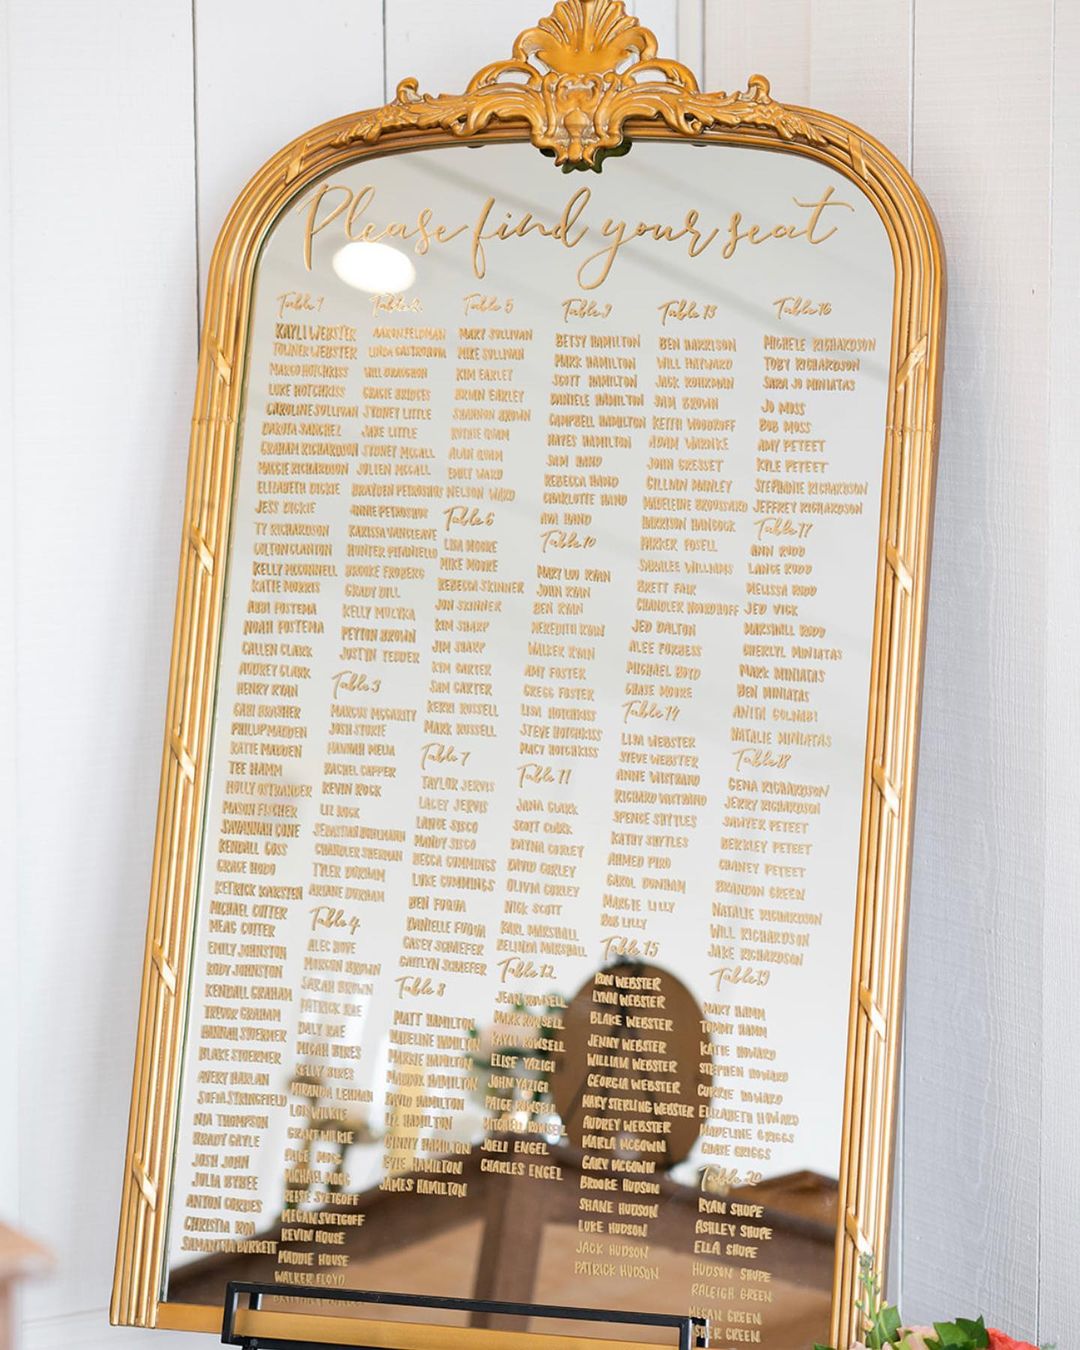 Please find your seat
Table 1
KAYLI WEBSTER
TOWNER WEBSTER
MARGO HOTCHKISS
LUKE HOTCHKISS
CAROLINE SULLIVAN
DAKOTA SANCHEZ
GRAHAM RICHARDSON
MAGGIE RICHARDSON
ELIZABETH DICKIE
JESS DICKIE
TY RICHARDSON
COLTON CLANTON
KELLY MCCONNELL
KATIE MORRIS
ABBI POSTEMA
NOAH POSTEMA
CALLEN CLARK
AUDREY CLARK
HENRY RYAN
CARI BRASHER
PHILLIP MADDEN
KATIE MADDEN
TEE HAMM
HOLLY OSTRANDER
MASON FISCHER
SAVANNAH CONE
KENDALL GOSS
GRACE HODO
KETRICK KARSTEN
MICHAEL COTTER
MEAG COTTER
EMILY JOHNSTON
KODY JOHNSTON
KENDALL GRAHAM
TREVOR GRAHAM
HANNAH STOERMER
BLAKE STOERMER
AVERY HARLAN
SOFIA STRINGFIELD
NIA THOMPSON
BRADY GAYLE
JOSH JOHN
JULIA BYBEE
ANTON CORDES
CHRISTIA ROA
SAMANTHA BURKETT
Table 2
AARON FELDMAN
LINDA CASTRONOVA
WILL DRAGHON
GRACIE BRIDGES
SYDNEY LITTLE
JAKE LITTLE
SYDNEY MCCALL
JULIEN MCCALL
BRAYDEN PETROSHUS
ANNIE PETROSHUS
KARISSA VANCLEAVE
HUNTER PITANIELLO
BROOKE FROBERG
GRADY DILL
KELLY MULYKA
PEYTON BROWN
JUSTYN TEDDER
Table 3
MARCUS MCGARITY
JOSH STORIE
HANNAH MEJIA
RACHEL CAPPER
KEVIN ROCK
LIZ ROCK
SEBASTIAN BUHLMANN
CHANDLER SHERMAN
TYLER DURHAM
ARIANE DURHAM
Table 4
ALEC HOVE
MORGAN BROWN
SARAH BROWN
PATRICK RAE
DALY RAE
MICAH BIKES
KELLY BIKES
MIRANDA LEHMAN
LOIS WILKIE
GRANT WILKIE
PAIGE MOSS
MICHAEL MOSS
REESE SVETGOFF
MEGAN SVETGOFF
KEVIN HOUSE
MADDIE HOUSE
WALKER FLOYD
Table 5
MARY SULLIVAN
MIKE SULLIVAN
KIM EARLEY
BRIAN EARLEY
SHANNON BROWN
RUTHIE QUAM
ALAN QUAM
EMILY WARD
NELSON WARD
Table 6
LISA MOORE
MIKE MOORE
REBECCA SKINNER
JON SKINNER
KIM SHARP
JIM SHARP
KIM CARTER
SAM CARTER
KERRI RUSSELL
MARK RUSSELL
Table 7
TAYLOR JERVIS
LACEY JERVIS
LANCE SISCO
MANDY SISCO
BECCA CUMMINGS
LUKE CUMMINGS
BEN FUQUA
DANIELLE FUQUA
CASEY SCHAEFER
CAITLYN SCHAEFER
Table 8
MATT HAMILTON
MADELINE HAMILTON
MARGIE HAMILTON
MADDOX HAMILTON
DAVID HAMILTON
LIZ HAMILTON
GINNY HAMILTON
EVIE HAMILTON
JAMES HAMILTON
Table 9
BETSY HAMILTON
MARK HAMILTON
SCOTT HAMILTON
DANIELE HAMILTON
CAMPBELL HAMILTON
HAYES HAMILTON
SAM HAND
REBECCA HAND
CHARLOTTE HAND
AVA HAND
Table 10
MARY LOU RYAN
JOHN RYAN
BEN RYAN
MEREDITH RYAN
WALKER RYAN
AMY FOSTER
GREGG FOSTER
LISA HOTCHKISS
STEVE HOTCHKISS
MACY HOTCHKISS
Table 11
JANA CLARK
SCOTT CLARK
DAYNA CORLEY
DAVID CORLEY
OLIVIA CORLEY
NICK SCOTT
KARL MARSHALL
BELINDA MARSHALL
Table 12
JEAN ROWSELL
MARK ROWSELL
KAYLI ROWSELL
ELISE YAZIGI
JOHN YAZIGI
PAIGE ROWSELL
MITCHELL ROWSELL
JOELI ENGEL
CHARLES ENGEL
Table 13
BEN HARRISON
WILL HAYWARD
JACK ROHRMAN
SAM BROWN
KEITH WOODROFF
ADAM WARNKE
JOHN GRESSET
GILLIAN MANLEY
MADELINE BROUSSARD
HARRISON HANCOCK
PARKER POSELL
SARALEE WILLIAMS
BRETT FAIR
CHANDLER NOORDHOFF
JED DALTON
ALEE PURHESS
MICHAEL BOYD
CHASE MOORE
Table 14
LISA WEBSTER
STEVE WEBSTER
ANNE WISTRAND
RICHARD WISTRAND
SPENCE SHYTLES
KATHY SHYTLES
AHMED PIRO
CAROL DUNHAM
MARGIE LILLY
BOB LILLY
Table 15
RON WEBSTER
LYNN WEBSTER
BLAKE WEBSTER
JENNY WEBSTER
WILLIAM WEBSTER
GEORGIA WEBSTER
MARY STERLING WEBSTER
AUDREY WEBSTER
MARLA MCGOWN
GARY MCGOWN
BROOKE HUDSON
SHANE HUDSON
LUKE HUDSON
JACK HUDSON
PATRICK HUDSON
Table 16
MICHELE RICHARDSON
TOBY RICHARDSON
SARA JO MINIATAS
JO MOSS
BOB MOSS
AMY PETEET
KYLE PETEET
STEPHANIE RICHARDSON
JEFFREY RICHARDSON
Table 17
ANN RUDD
LANCE RUDD
MELISSA RUDD
JED VICK
MARSHALL RUDD
CHERLYL MINIATAS
MARK MINIATAS
BEN MINIATAS
ANITA GOLNABI
NATALIE MINIATAS
Table 18
GENA RICHARDSON
JERRY RICHARDSON
SAWYER PETEET
BERKLEY PETEET
CHANEY PETEET
BRANDON GREEN
NATALIE RICHARDSON
WILL RICHARDSON
JAKE RICHARDSON
Table 19
MARY HAMM
TOMMY HAMM
KATIE HOWARD
STEPHEN HOWARD
CURRIE HOWARD
ELIZABETH HOWARD
MADELINE GRIGGS
CHASE GRIGGS
Table 20
RYAN SHUPE
ASHLEY SHUPE
ELLA SHUPE
HUDSON SHUPE
RALEIGH GREEN
MEGAN GREEN
GREEN